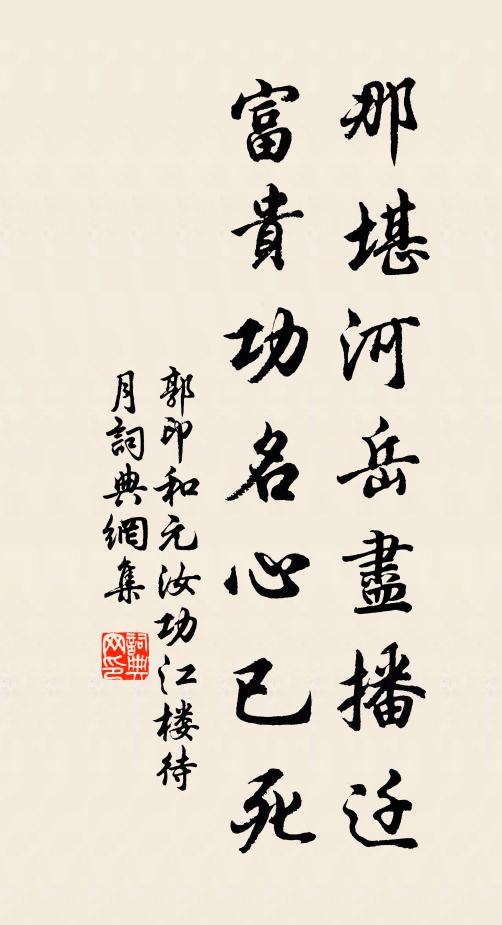 那堪河岳盡播迁
富貴功名心已死
郭印和元汝功江楼待
月詞典網集
詞典
网印